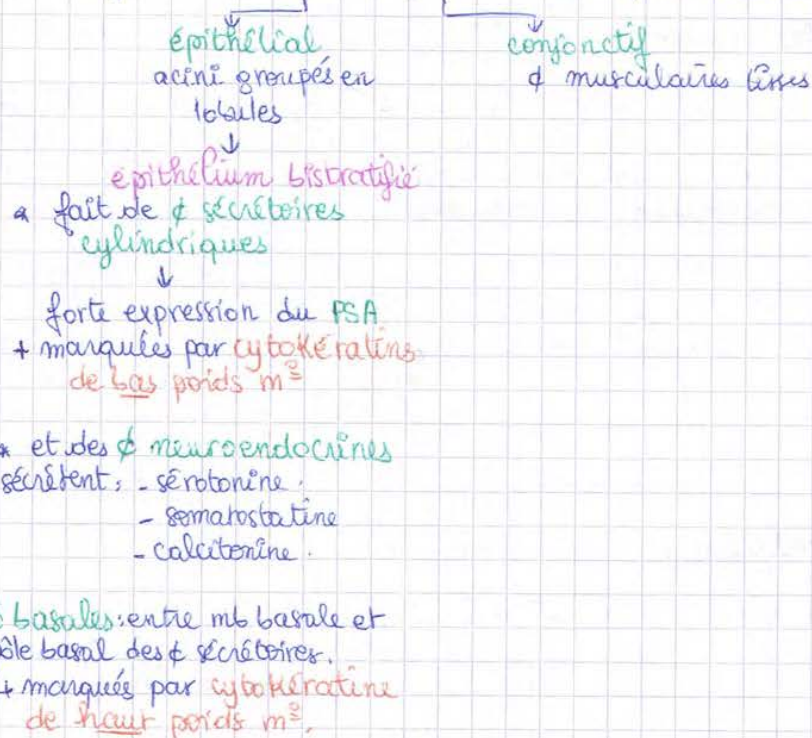 épithélial
acini groupés en
lobules
↓
épithélium bistratifié
* fait de ¢ sécrétoires
cylindriques
↓
forte expression du PSA
+ marquées par cytokératins
de bas poids m²
* et des ¢ neuroendocrines
sécrètent: - sérotonine.
- somatostatine
- calcitonine.
basales: entre mb basale et
ôle basal des ¢ sécrétoires.
+ marqués par cytokératine
de haut poids m².
conjonctif
¢ musculaires lisses